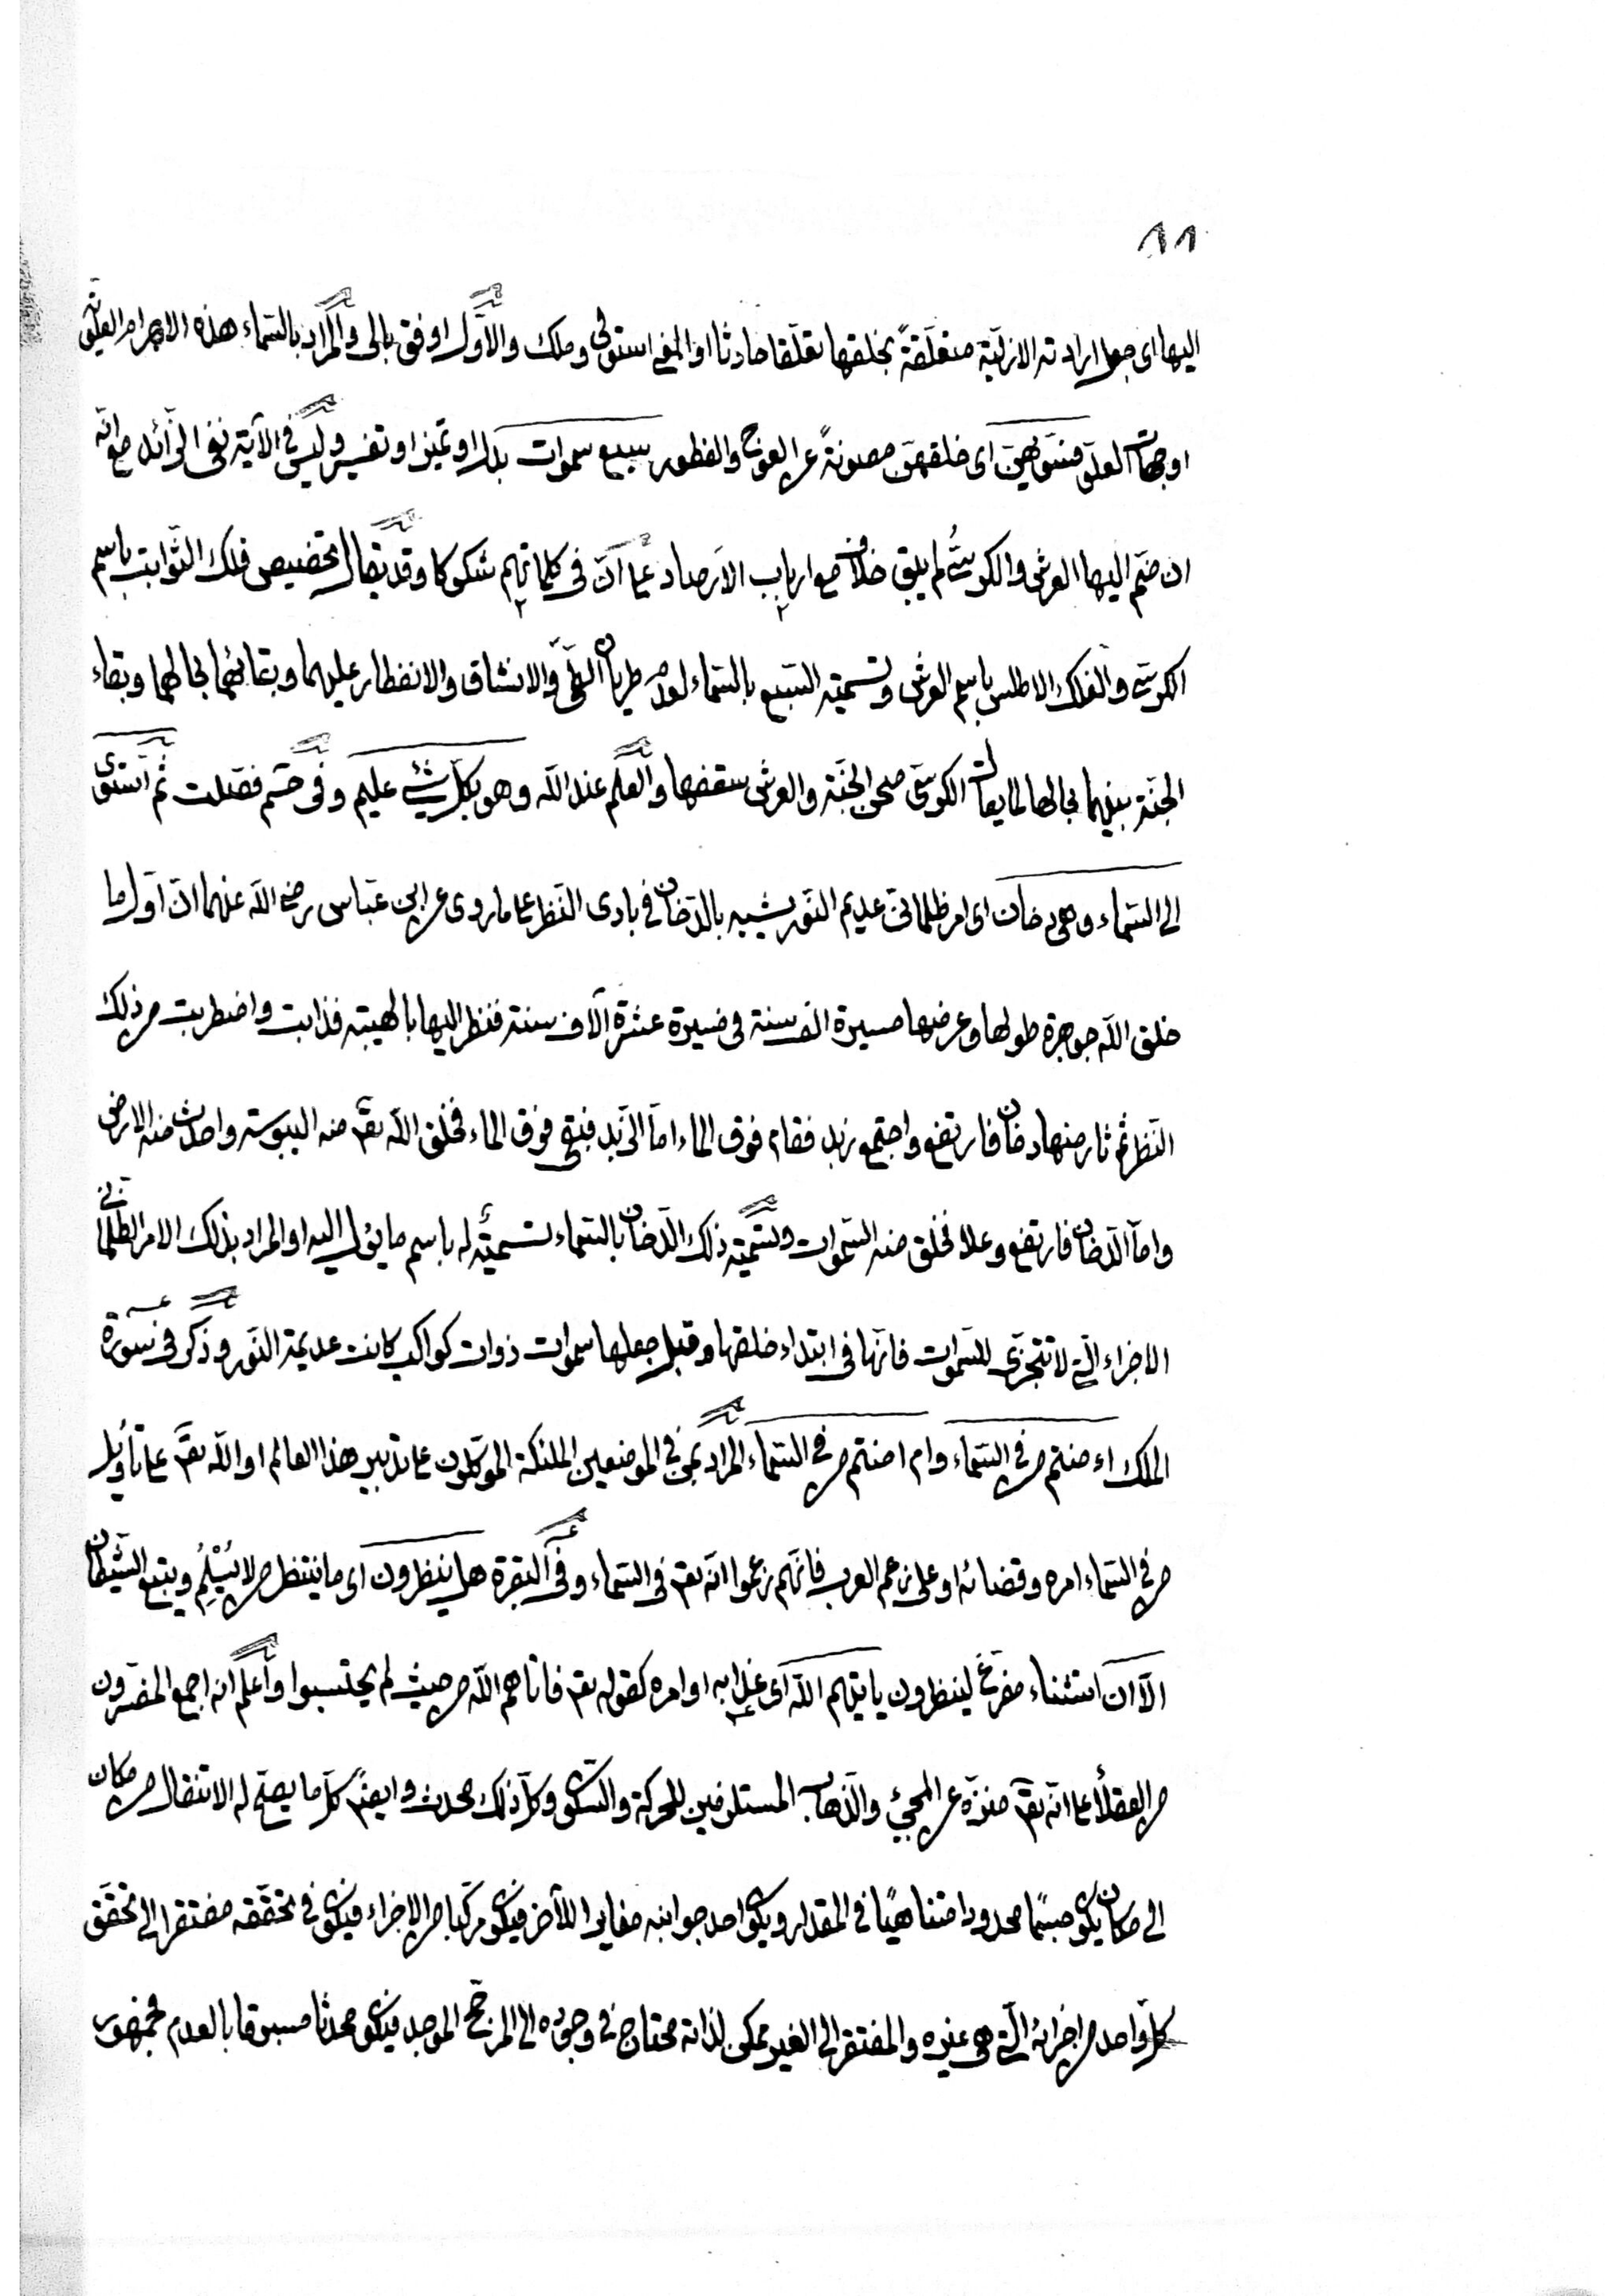 ١١
اليها اى جعل ارادته الازليّة متعلّقةً بخلقها تعلّقا حادثا او المعنى استولى وملك والاوّل اوفق بالى والمراد بالسّماء هذه الاجرام العلويّة
او جهات العلوّ فسوّيهنّ اى خلقهنّ مصونةً عن العوج والفطور سبع سموات بدل او تميز او تفسير وليس فى الآية نفى الزّائد مع انّه
ان ضمّ اليها العرش والكرسىّ لم يبق خلاف مع ارباب الارصاد على انّ فى كلماتهم شكوكا وقد يقال تخصيص فلك الثّوابت باسم
الكرسىّ والفلك الاطلس باسم العرش وتسمية السّبع بالسّماء لعدم طريان الطىّ والانشاق والانفطار عليهما وبقائهما بحالهما وبقاء
الجنّة بينهما بحالها لما يقال الكرسىّ صحن الجنّة والعرش سقفها والعلم عند اللّه وهو بكلّ شيئ عليم وفى حتم فصّلت ثم استوى
الى السّماء وهى دخان اى امر ظلمانىّ عديم النّور شبيه بالدّخان فى بادى النّظر على ما روى عن ابن عبّاس رضى اللّه عنهما انّ اوّل ما
خلق اللّه جوهرة طولها وعرضها مسيرة الف سنة فى مسيرة عشرة آلاف سنة فنظر اليها بالهيبة فذابت واضطربت من ذلك
النّظر ثم ثار منها دخان فارتفع واجتمع زبد فقام فوق الماء امّا الزّبد فبقى فوق الماء فخلق اللّه تعّ منه اليبوسة واحدث منه الارض
وامّا الدّخان فارتفع وعلا فخلق منه السّموات وتسمية ذلك الدّخان بالسّماء تسميةٌ له باسم ما يؤل اليه او المراد بذلك الامر الظّلمانى
الاجزاء الّتى لا تتجزّى للسّموات فانّها فى ابتداء خلقها وقبل جعلها سموات ذوات كواكب كانت عديمة النّور وذكر فى سورة
الملك ءامنتم من فى السّماء وام امنتم من فى السّماء المراد بمن فى الموضعين الملئكة الموكّلون على تدبير هذا العالم او اللّه تعّ على تأويل
من فى السّماء امره وقضائه او على زعم العرب فانّهم زعموا انّه تعّ فى السّماء وفى البقرة هل ينظرون اى ما ينتظر من لا يُسْلِمُ ويتبع الشّيطان
الّا ان استثناء مفرّغ لينظرون ياتيهم اللّه اى عذابه او امره كقوله تعّ فاتاهم اللّه من حيث لم يحتسبوا واعلم انه اجمع المفسّرون
من العقلاء على انّه تعّ منزّه عن المجيئ والذّهاب المستلزمين للحركة والسّكون وكلّ ذلك محدث وايضًا كلّ ما يصحّ له الانتقال من مكان
الى مكان يكون جسمًا محدودا متناهيًا فى المقدار ويكون احد جوانبه مغايرا للآخر فيكون مركّبا من الاجزاء فيكون فى تحقّقه مفتقرا الى تحقّق
كلّ واحد من اجزائه الّتى هى غيره والمفتقر الى الغير ممكن لذاته محتاج فى وجوده الى المرجّح الموجد فيكون محدثا مسبوقا بالعدم فجمهور